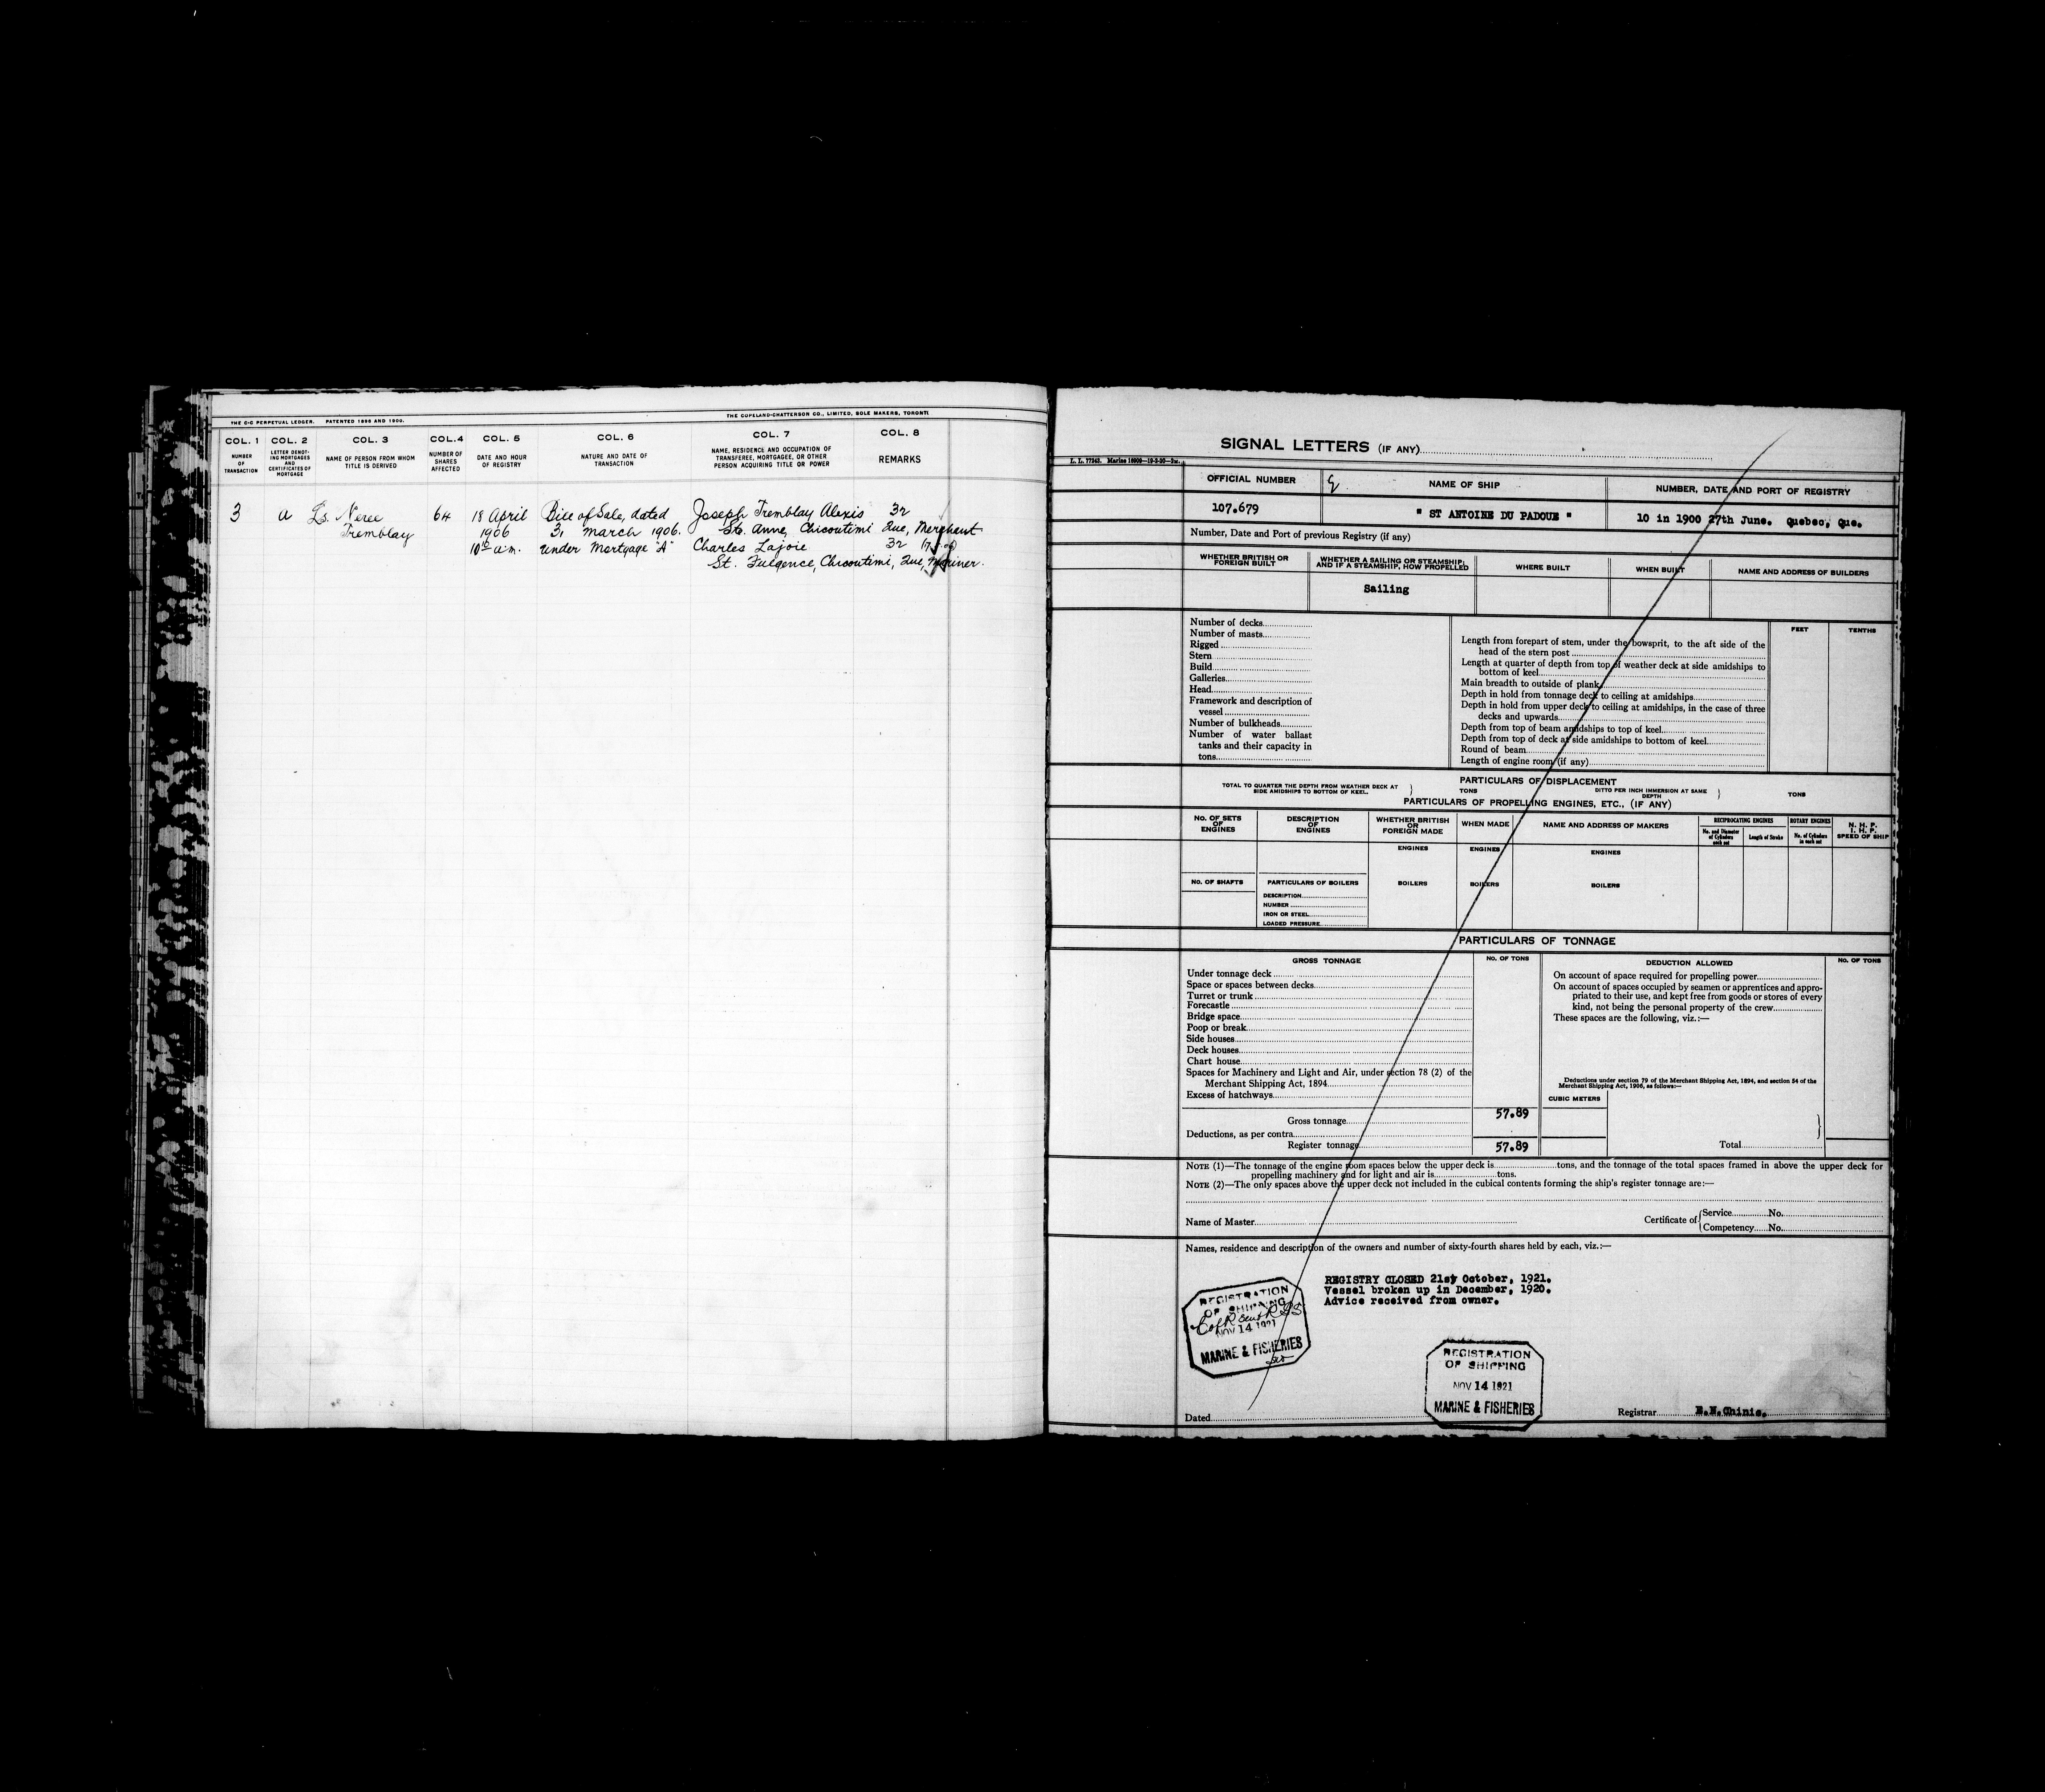 THE C-C PERPETUAL LEDGER. PATENTED 1896 AND 1900.
THE COPELAND-CHATTERSON CO., LIMITED, SOLE MAKERS, TORONTO
COL. 1
NUMBER
OF
TRANSACTION
COL. 2
LETTER DENOT-
ING MORTGAGES
AND
CERTIFICATES OF
MORTGAGE
COL. 3
NAME OF PERSON FROM WHOM
TITLE IS DERIVED
COL. 4
NUMBER OF
SHARES
AFFECTED
COL. 5
DATE AND HOUR
OF REGISTRY
COL. 6
NATURE AND DATE OF
TRANSACTION
COL. 7
NAME, RESIDENCE AND OCCUPATION OF
TRANSFEREE, MORTGAGEE, OR OTHER
PERSON ACQUIRING TITLE OR POWER
COL. 8
REMARKS
3 a Ls. Neree 64 18 April Bill of Sale, dated Joseph Tremblay Alexis 32
Tremblay 1906 31 March 1906. Ste. Anne, Chicoutimi Que, Merchant
10 a.m. under Mortgage "A" Charles Lajoie 32
St. Fulgence, Chicoutimi, Que, Mariner.
SIGNAL LETTERS (IF ANY)
L. L. 77243.
OFFICIAL NUMBER
NAME OF SHIP
NUMBER, DATE AND PORT OF REGISTRY
107.679
" ST ANTOINE DU PADOUE "
10 in 1900 27th June. Quebec, Que.
Number, Date and Port of previous Registry (if any)
WHETHER BRITISH OR
FOREIGN BUILT
WHETHER A SAILING OR STEAMSHIP;
AND IF A STEAMSHIP, HOW PROPELLED
WHERE BUILT
WHEN BUILT
NAME AND ADDRESS OF BUILDERS
Sailing
Number of decks
Number of masts
Rigged
Stern
Build
Galleries
Head
Framework and description of
vessel
Number of bulkheads
Number of water ballast
tanks and their capacity in
tons
FEET
TENTHS
Length from forepart of stem, under the bowsprit, to the aft side of the
head of the stern post
Length at quarter of depth from top of weather deck at side amidships to
bottom of keel
Main breadth to outside of plank
Depth in hold from tonnage deck to ceiling at amidships
Depth in hold from upper deck to ceiling at amidships, in the case of three
decks and upwards
Depth from top of beam amidships to top of keel
Depth from top of deck at side amidships to bottom of keel
Round of beam
Length of engine room (if any)
PARTICULARS OF DISPLACEMENT
TOTAL TO QUARTER THE DEPTH FROM WEATHER DECK AT
SIDE AMIDSHIPS TO BOTTOM OF KEEL
TONS
DITTO PER INCH IMMERSION AT SAME
DEPTH
TONS
PARTICULARS OF PROPELLING ENGINES, ETC., (IF ANY)
NO. OF SETS
OF
ENGINES
DESCRIPTION
OF
ENGINES
WHETHER BRITISH
OR
FOREIGN MADE
WHEN MADE
NAME AND ADDRESS OF MAKERS
RECIPROCATING ENGINES
No. and Diameter
of Cylinders
each set
Length of Stroke
ROTARY ENGINES
No. of Cylinders
in each set
N. H. P.
I. H. P.
SPEED OF SHIP
ENGINES
ENGINES
ENGINES
NO. OF SHAFTS
PARTICULARS OF BOILERS
BOILERS
BOILERS
BOILERS
DESCRIPTION
NUMBER
IRON OR STEEL
LOADED PRESSURE
PARTICULARS OF TONNAGE
GROSS TONNAGE
NO. OF TONS
DEDUCTION ALLOWED
NO. OF TONS
Under tonnage deck
Space or spaces between decks
Turret or trunk
Forecastle
Bridge space
Poop or break
Side houses
Deck houses
Chart house
Spaces for Machinery and Light and Air, under section 78 (2) of the
Merchant Shipping Act, 1894
Excess of hatchways
Gross tonnage 57.89
Deductions, as per contra
Register tonnage 57.89
On account of space required for propelling power
On account of spaces occupied by seamen or apprentices and appro-
priated to their use, and kept free from goods or stores of every
kind, not being the personal property of the crew
These spaces are the following, viz.:—
Deductions under section 79 of the Merchant Shipping Act, 1894, and section 54 of the
Merchant Shipping Act, 1906, as follows:—
CUBIC METERS
Total
NOTE (1)—The tonnage of the engine room spaces below the upper deck is tons, and the tonnage of the total spaces framed in above the upper deck for
propelling machinery and for light and air is tons.
NOTE (2)—The only spaces above the upper deck not included in the cubical contents forming the ship's register tonnage are:—
Name of Master
Certificate of
Service No.
Competency No.
Names, residence and description of the owners and number of sixty-fourth shares held by each, viz.:—
REGISTRY CLOSED 21st October, 1921.
Vessel broken up in December, 1920.
Advice received from owner.
REGISTRATION
OF SHIPPING
NOV 14 1921
MARINE & FISHERIES
REGISTRATION
OF SHIPPING
NOV 14 1921
MARINE & FISHERIES
Dated
Registrar